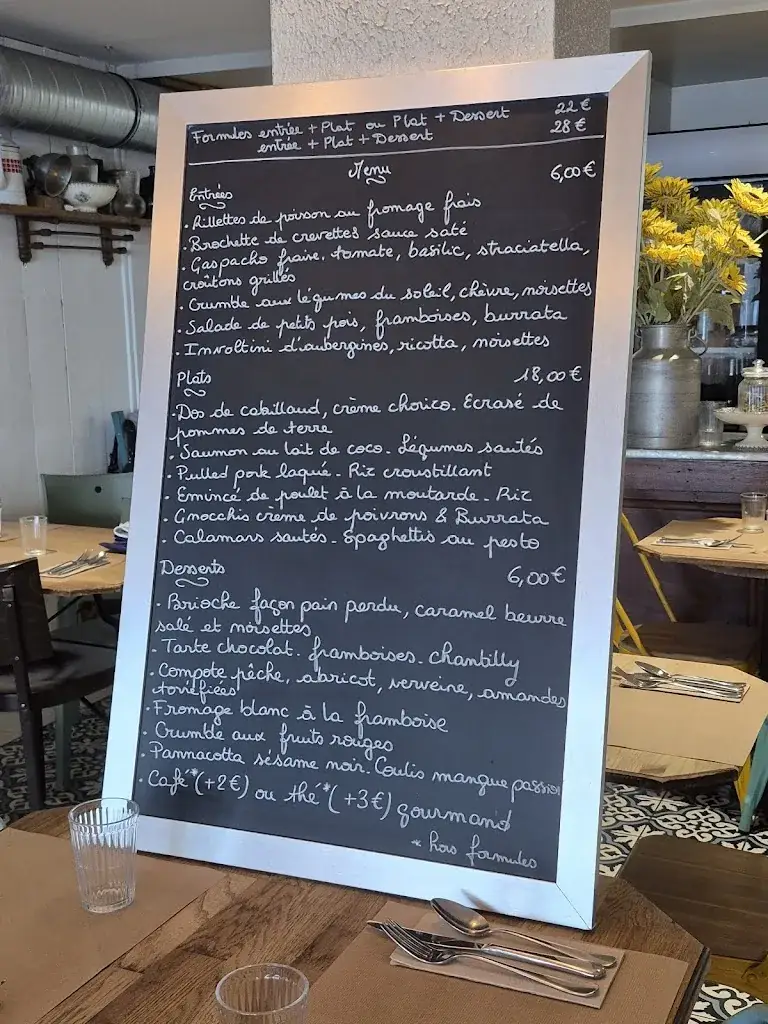 Formules entrée + Plat ou Plat + Dessert 22 €
entrée + Plat + Dessert 28 €
Menu
Entrées 6,00 €
. Rillettes de poisson au fromage frais
. Brochette de crevettes sauce saté
. Gaspacho fraise. tomate, basilic, straciatella,
croûtons grillés
. Crumble aux légumes du soleil, chèvre, noisettes
. Salade de petits pois, framboises, burrata
. Involtini d'aubergines, ricotta, noisettes
Plats 18,00 €
. Dos de cabillaud, crème chorizo. Ecrasé de
pommes de terre
. Saumon au lait de coco. Légumes sautés
. Pulled pork laqué - Riz croustillant
. Emincé de poulet à la moutarde - Riz
. Gnocchis crème de poivrons & Burrata
. Calamars sautés - Spaghettis au pesto
Desserts 6,00 €
. Brioche façon pain perdu, caramel beurre
salé et noisettes
. Tarte chocolat. framboises. chantilly
. Compote pêche, abricot, verveine, amandes
torréfiées
. Fromage blanc à la framboise
. Crumble aux fruits rouges
. Pannacotta sésame noir. Coulis mangue passion
. Café* (+2€) ou thé* (+3€) gourmand
* hors formules